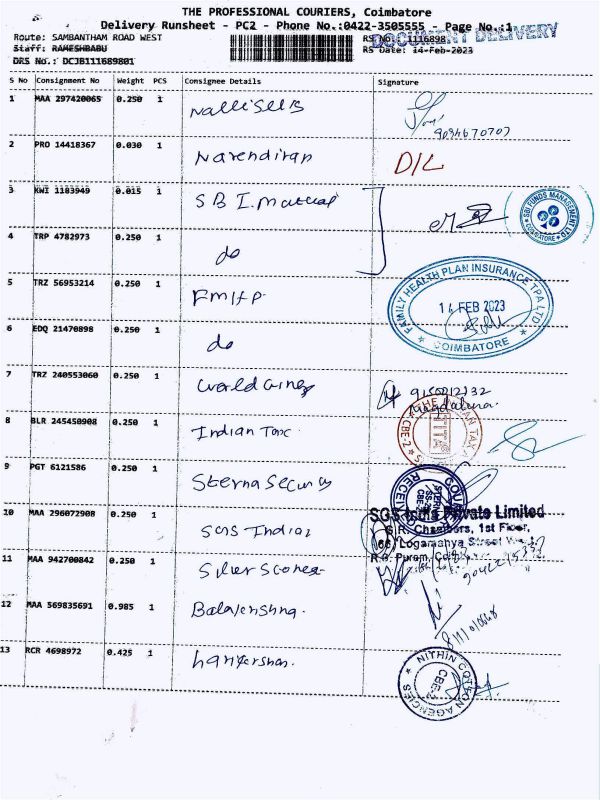 THE PROFESSIONAL COURIERS, Coimbatore
Delivery Runsheet - PC2 - Phone No.:0422-3505555 - Page No.:1
DOCUMENT DELIVERY
Route: SAMBANTHAM ROAD WEST
RS No.: 1116898
Staff: RAMESHBABU
RS Date: 14-Feb-2023
DRS No.: DCJB111689801
S No Consignment No Weight PCS Consignee Details Signature
1 MAA 297420065 0.250 1
2 PRO 14418367 0.030 1 Narendiran D/L
3 KWI 1183949 0.015 1 SBI. Mutual
SBI FUNDS MANAGEMENT LTD
COIMBATORE
4 TRP 4782973 0.250 1 do
5 TRZ 56953214 0.250 1 FMHP
FAMILY HEALTH PLAN INSURANCE TPA LTD
14 FEB 2023
COIMBATORE
6 EDQ 21470898 0.250 1 do
7 TRZ 240553060 0.250 1
8 BLR 245450908 0.250 1 Indian Tax
CBE-2
9 PGT 6121586 0.250 1 Sterna Security
RECEIVED
10 MAA 296072908 0.250 1 SGS India
SGS India Private Limited
S.R. Chambers, 1st Floor,
Logamanya Street
R.S. Puram,
11 MAA 942700842 0.250 1
12 MAA 569835691 0.985 1
13 RCR 4698972 0.425 1
NITHIN COTTON AGENCIES
CBE-2